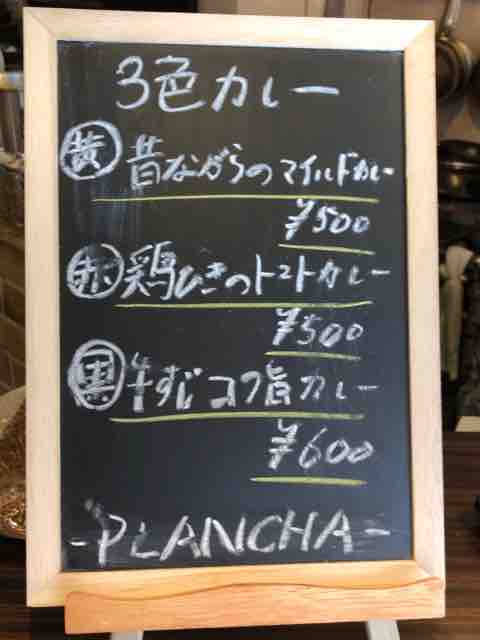 3色カレー
黄 昔ながらのマイルドカレー
¥500
赤 鶏ひきのトマトカレー
¥500
黒 牛すじコク旨カレー
¥600
-PLANCHA-